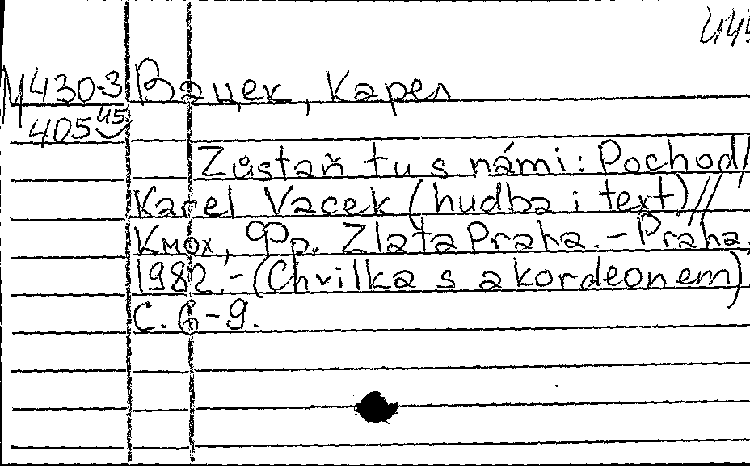 445
М4303 Вацек, Карел
405 45
Zůstaň tu s námi: Pochod/
Karel Vacek (hudba i text)//
Кмох, Фр. Zlatá Praha. - Praha,
1982. - (Chvilka s akordeonem)
С. 6-9.